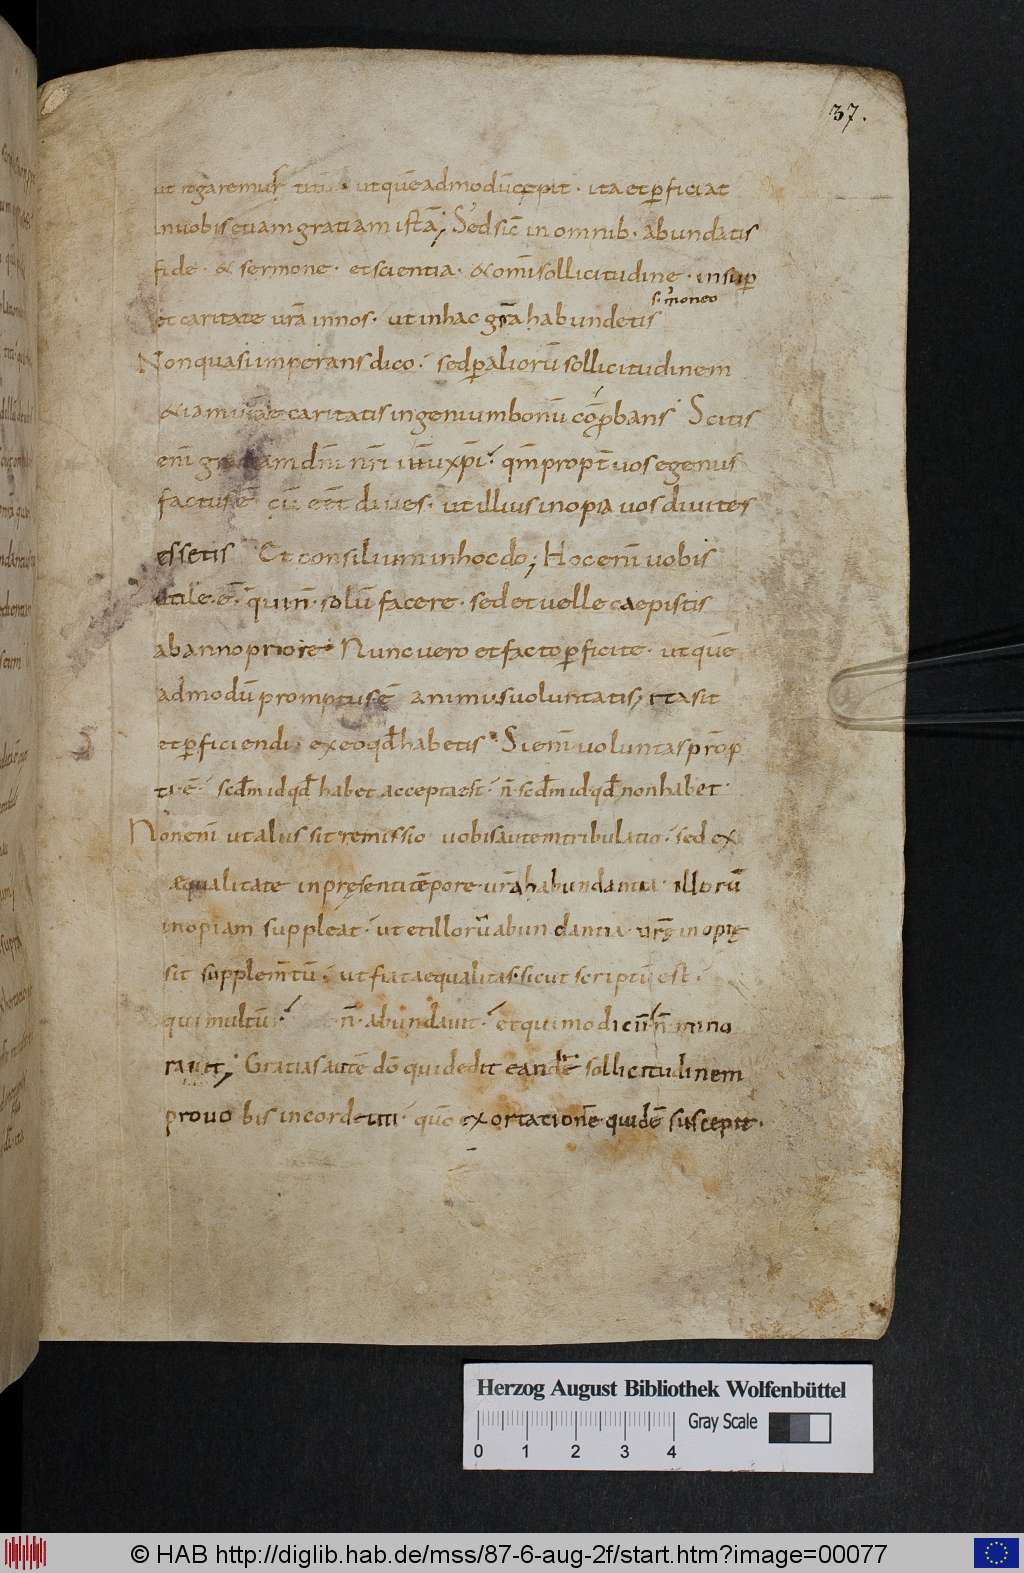 37.
ut rogaremus titū· utquēadmodū cępit· ita et ꝑficiat
in uobis etiam gratiam istā; Sed sic̄ in omnib· abundatis
fide· & sermone· et scientia· & om̄i sollicitudine· insuꝑ
s· moneo
et caritate ur̄a in nos· ut in hac gr̄a habundetis
Non quasi imperans dico· sed ꝑ aliorū sollicitudinem
& iam ur̄ae caritatis ingenium bonū cōprobans· Scitis
eni̅ gratiam dn̄i nr̄i ih̄u xp̄i· qm̄ propt̄ uos egenus
factus ē cū eēt diues· ut illius inopia uos diuites
essetis Et consilium in hoc do; Hoc eni̅ uobis
utile· ē· qui n̄· solū facere· sed et uelle caepistis
ab anno priore· Nunc uero et facto ꝑficite· ut quē
admodū promptus ē animus uoluntatis, ita sit
et ꝑficiendi· ex eo qd̄ habetis· Si eni̅ uoluntas prōp
ta· ē· scd̄m id qd̄ habet accepta est· n̄· scd̄m id qd̄ non habet·
Non eni̅ ut alus sit remissio uobis autem tribulatio· sed ex
aequalitate in pręsenti tēpore· ur̄a habundantia· illorū
inopiam suppleat· ut et illorū abundantia· ur̄ę inopię
sit supplem̄tū· ut fiat aequalitas· sicut scriptū est·
qui multū· n̄· abundauit· et qui modicū n̄ mino
rauit; Gratias autē dō qui dedit eandē sollicitudinem
pro uobis in corde titi· qūo exortationē quidē suscepit·
Herzog August Bibliothek Wolfenbüttel
Gray Scale
0 1 2 3 4
© HAB http://diglib.hab.de/mss/87-6-aug-2f/start.htm?image=00077